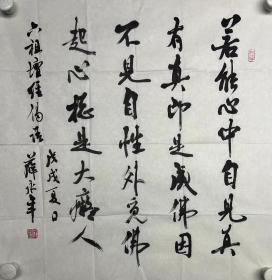 若能心中自見真
有真即是成佛因
不見自性外覓佛
起心總是大癡人
六祖壇經偈語
戊戌夏日 薛永年